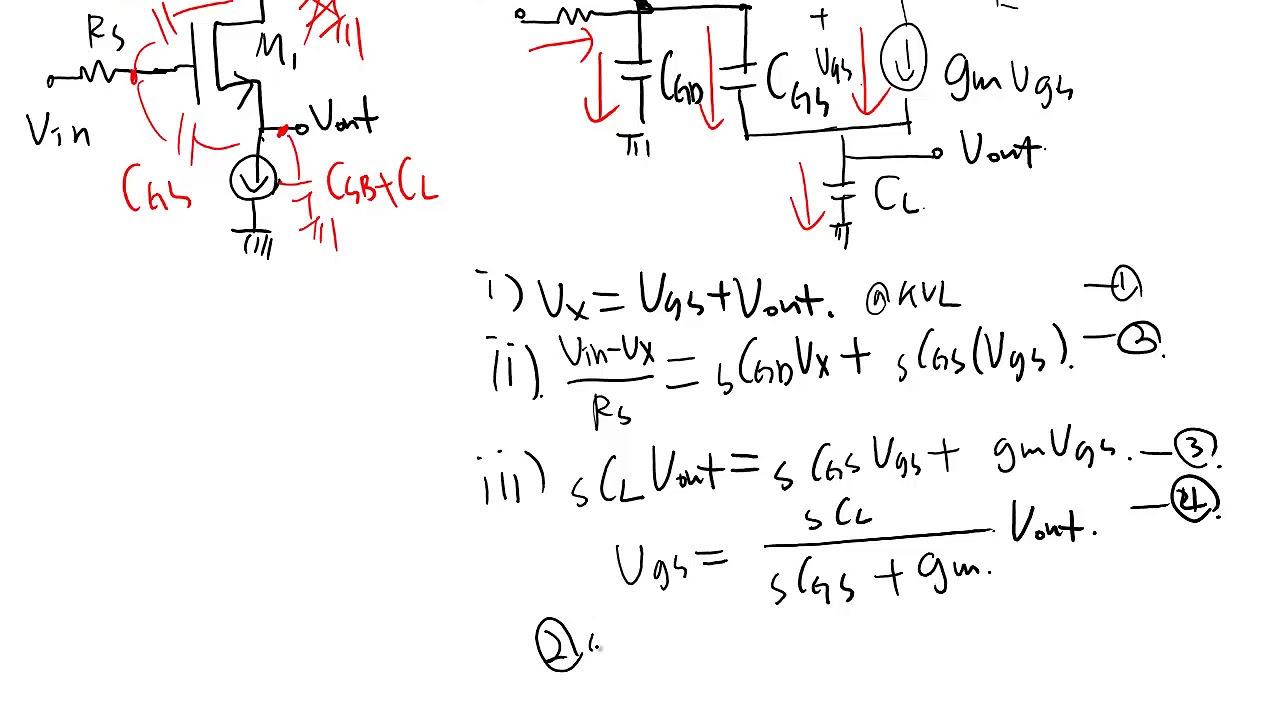 Rs
M1
Vin
Vout
CGS
CSB+CL
CGD
CGS
+
Vgs
gmVgs
Vout
CL
i) Vx = Vgs + Vout. @KVL —①
ii) Vin-Vx / Rs = sCGDVx + sCGS(Vgs). —②
iii) sCLVout = sCGSVgs + gmVgs. —③
Vgs = sCL / sCGS + gm. Vout. —④
②